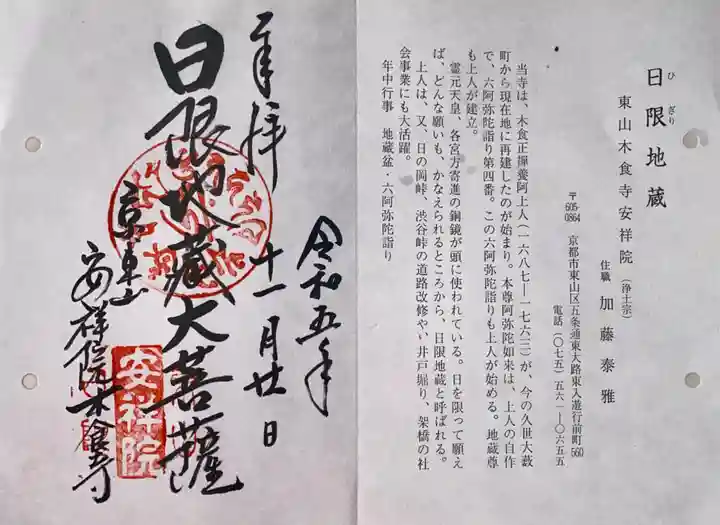 日限地蔵
ひ ぎり
東山木食寺安祥院 (浄土宗)
住職 加藤泰雅
〒605-0864 京都市東山区五条通東大路東入遊行前町560
電話 (〇七五) 五六一―〇六五五
当寺は、木食正禪養阿上人(一六八七―一七六三)が、今の久世大藪
町から現在地に再建したのが始まり。本尊阿弥陀如来は、上人の自作
で、六阿弥陀詣り第四番。この六阿弥陀詣りも上人が始める。地蔵尊
も上人が建立。
霊元天皇、各宮方寄進の銅鏡が頭に使われている。日を限って願え
ば、どんな願いも、かなえられるところから、日限地蔵と呼ばれる。
上人は、又、日の岡峠、渋谷峠の道路改修やい井戸堀り、架橋の社
会事業にも大活躍。
年中行事 地蔵盆・六阿弥陀詣り
令和五年
十一月廿日
奉拝
日限地蔵大菩薩
京東山
安祥院木食寺
安祥院